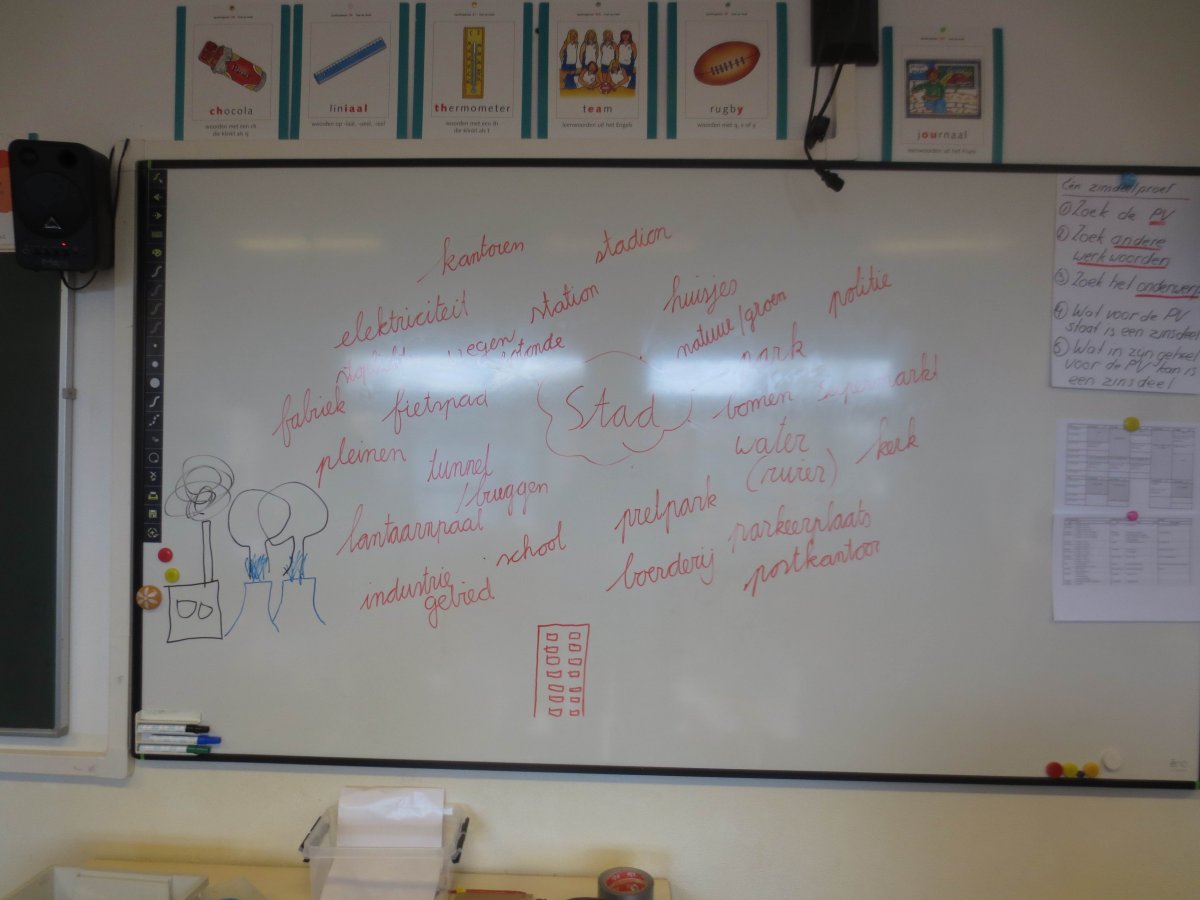 chocola
woorden met een ch
die klinkt als sj
liniaal
woorden op -iaal, -ueel, -eel
thermometer
woorden met een th
die klinkt als t
team
leenwoorden uit het Engels
rugby
journaal
leenwoorden uit het Frans
Één zinsdeelproef
① Zoek de PV
② Zoek andere
werkwoorden
③ Zoek het onderwerp
④ Wat voor de PV
staat is een zinsdeel
⑤ Wat in zijn geheel
voor de PV kan is
een zinsdeel
kantoren
stadion
elektriciteit
station
huisjes
politie
natuur/groen
wegen
rotonde
park
fabriek
fietspad
Stad
bomen
supermarkt
pleinen
tunnel
/bruggen
water
(rivier)
kerk
lantaarnpaal
school
pretpark
parkeerplaats
industrie
gebied
boerderij
postkantoor